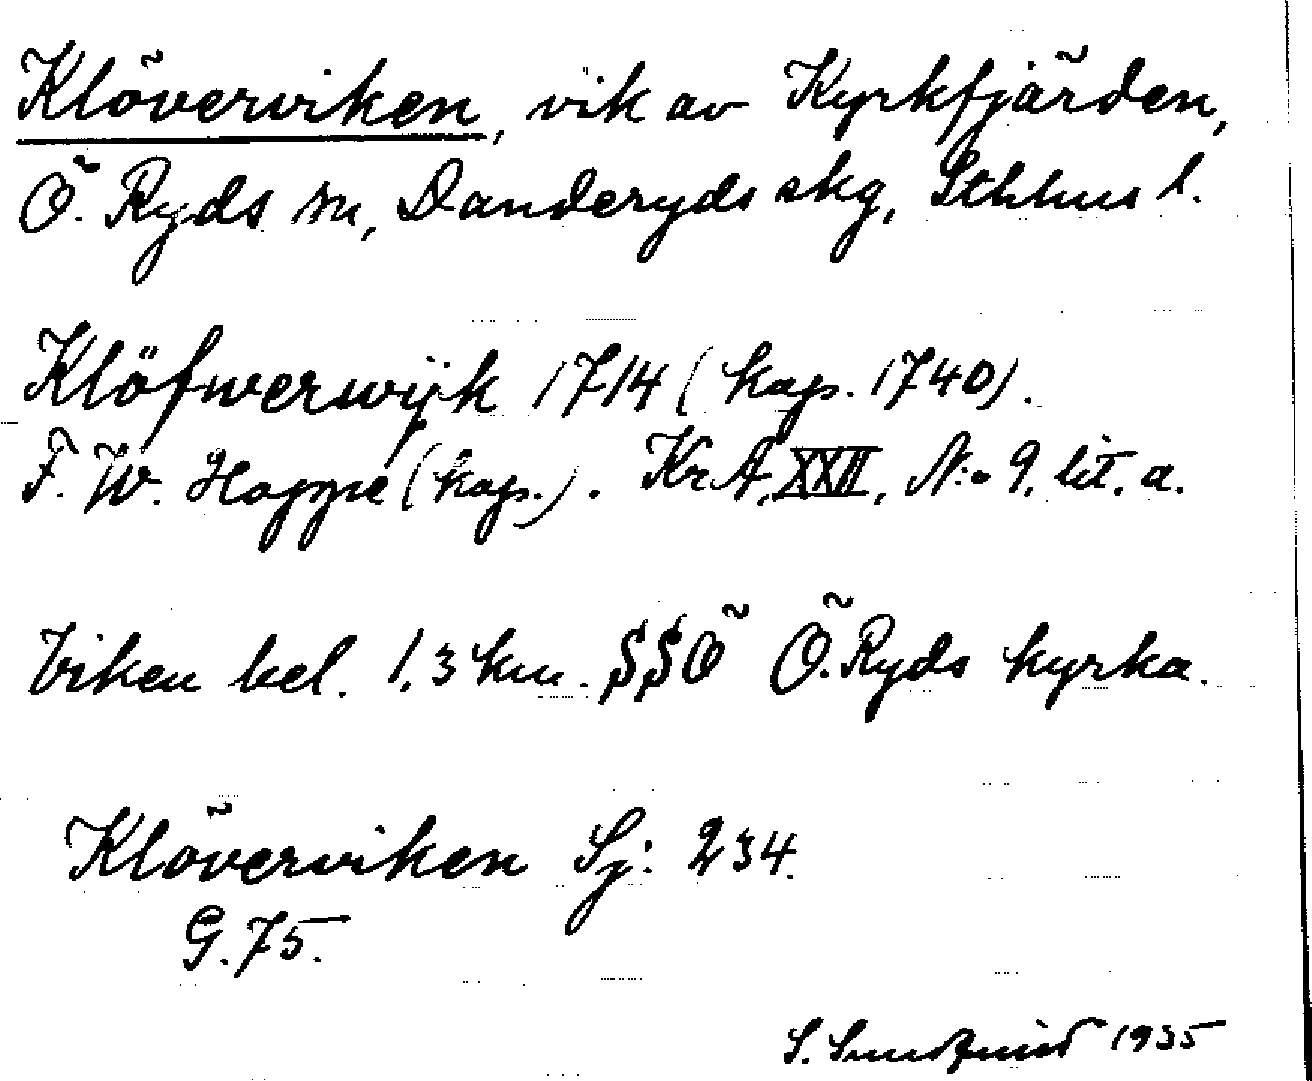 Klöverviken, vik av Kyrkfjärden,
Ö. Ryds sn, Danderyds skg, Sthlms l.
Klöfwerwijk 1714 (kop. 1740).
F. W. Hoppe (kop.). KrA, XXII, N:o 9. lit. a.
Viken bel. 1,3 km. SSÖ Ö. Ryds kyrka.
Klöverviken Sj: 234.
G. 75.
S. 1935